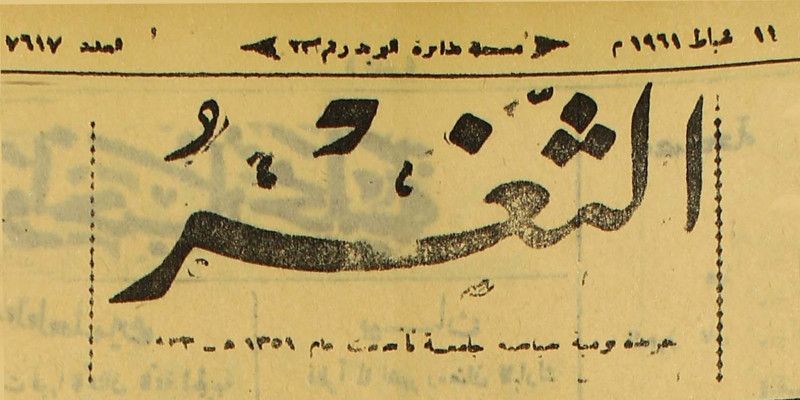 ١٤ شباط ١٩٦١ م مسجلة بدائرة البريد رقم ٢٣ العدد ٧٦١٧
الثَّغر
جريدة يومية سياسية جامعة تأسست عام ١٣٥١ هـ ـ ١٩٣٣